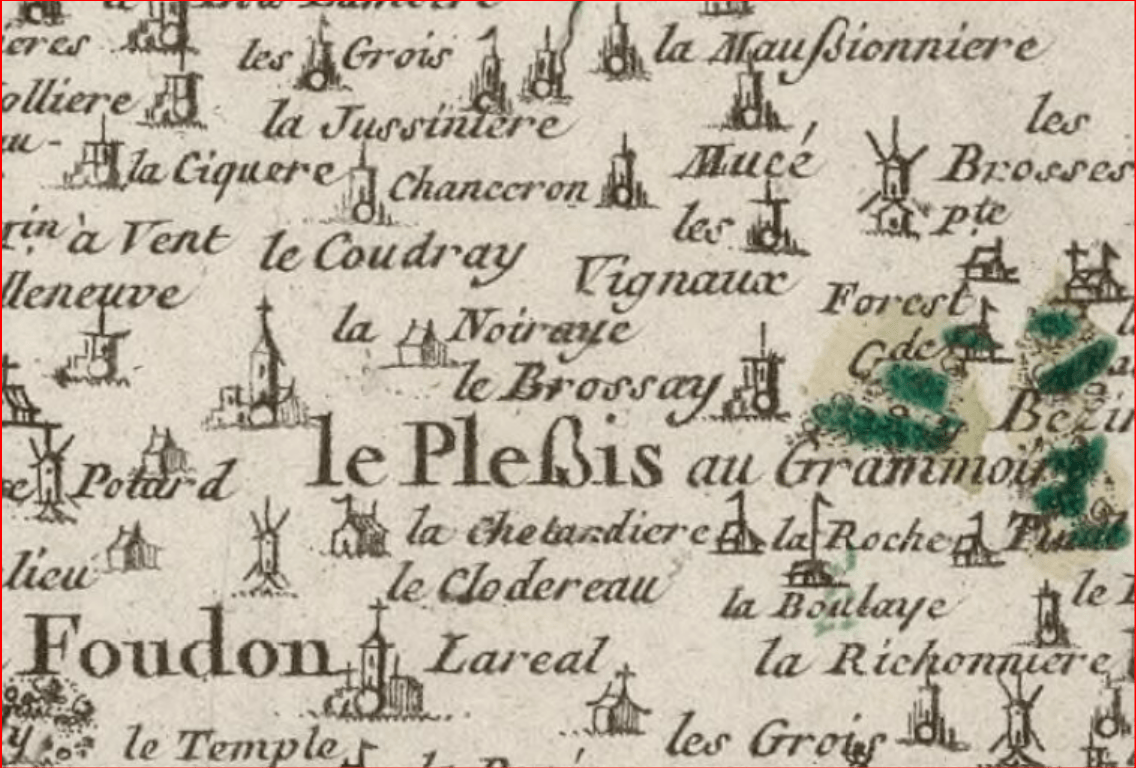 les Grois
la Maußionniere
la Jussiniere
les
Brosses
la Ciquere
Chanceron
Mucé
pte
à Vent
le Coudray
les
Vignaux
Forest
la Noiraye
Gde
le Brossay
le Pleßis au Grammoir
Potard
la Chetardiere
la Roche
lieu
le Clodereau
la Boulaye
Foudon
Lareal
la Richonniere
le Temple
les Grois